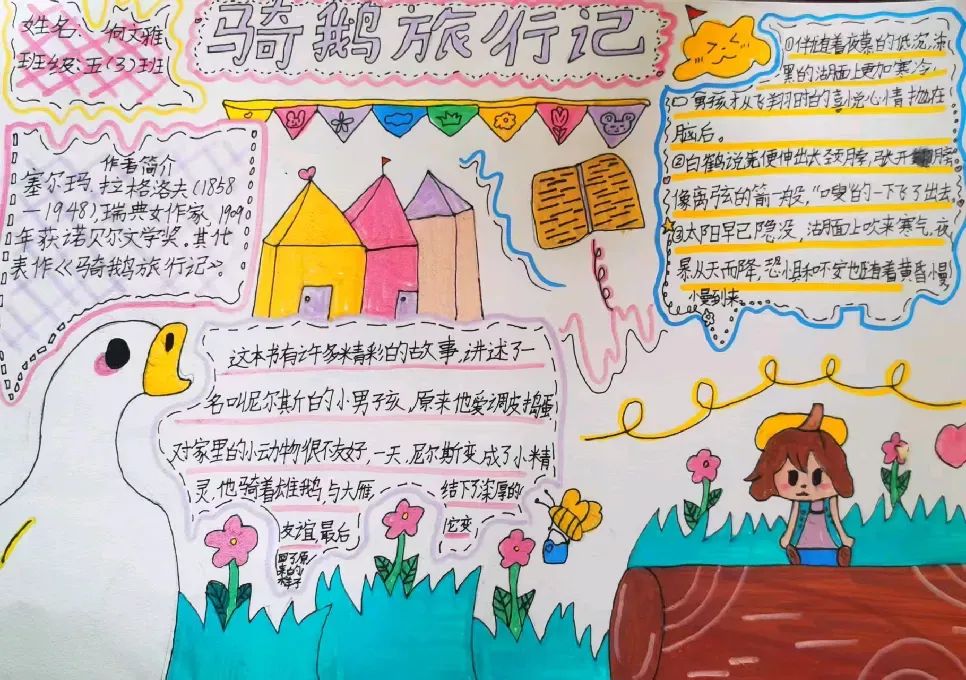 姓名：何文雅
班级：五（3）班
骑鹅旅行记
作者简介
塞尔玛.拉格洛夫（1858
—1948），瑞典女作家，1909
年获诺贝尔文学奖。其代
表作《骑鹅旅行记》。
①伴随着夜幕的低沉，漆
黑的沼面上更加寒冷，
男孩才从飞翔时的喜悦心情抛在
脑后。
②白鹤说完便伸出长颈脖，张开膀
像离弦的箭一般，“嗖”的一下飞了出去。
③太阳早已隐没，沼面上吹来寒气，夜
暴从天而降，恐惧和不安也随着黄昏慢
慢到来……
这本书有许多精彩的故事，讲述了一
名叫尼尔斯的小男孩，原来他爱调皮捣蛋
对家里的小动物很不友好，一天，尼尔斯变成了小精
灵，他骑着雄鹅，与大雁 结下了深厚的
友谊，最后 它变
回了原
来的
样子